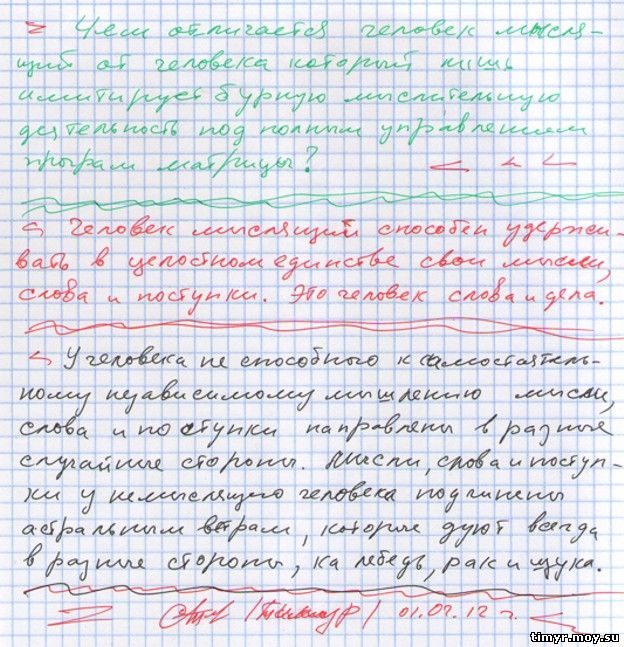 Чем отличается человек мысля-
щий от человека который лишь
имитирует бурную мыслительную
деятельность под полным управлением
програм матрицы?
Человек мыслящий способен удержи-
вать в целостном единстве свои мысли,
слова и поступки. Это человек слова и дела.
У человека не способного к самостоятель-
ному независимому мышлению мысли,
слова и поступки направлены в разные
случайные стороны. Мысли, слова и поступ-
ки у немыслящего человека подчинены
астральным ветрам, которые дуют всегда
в разные стороны, ка лебедь, рак и щука.
/Тимур/ 01.02.12 г.
timyr.moy.su